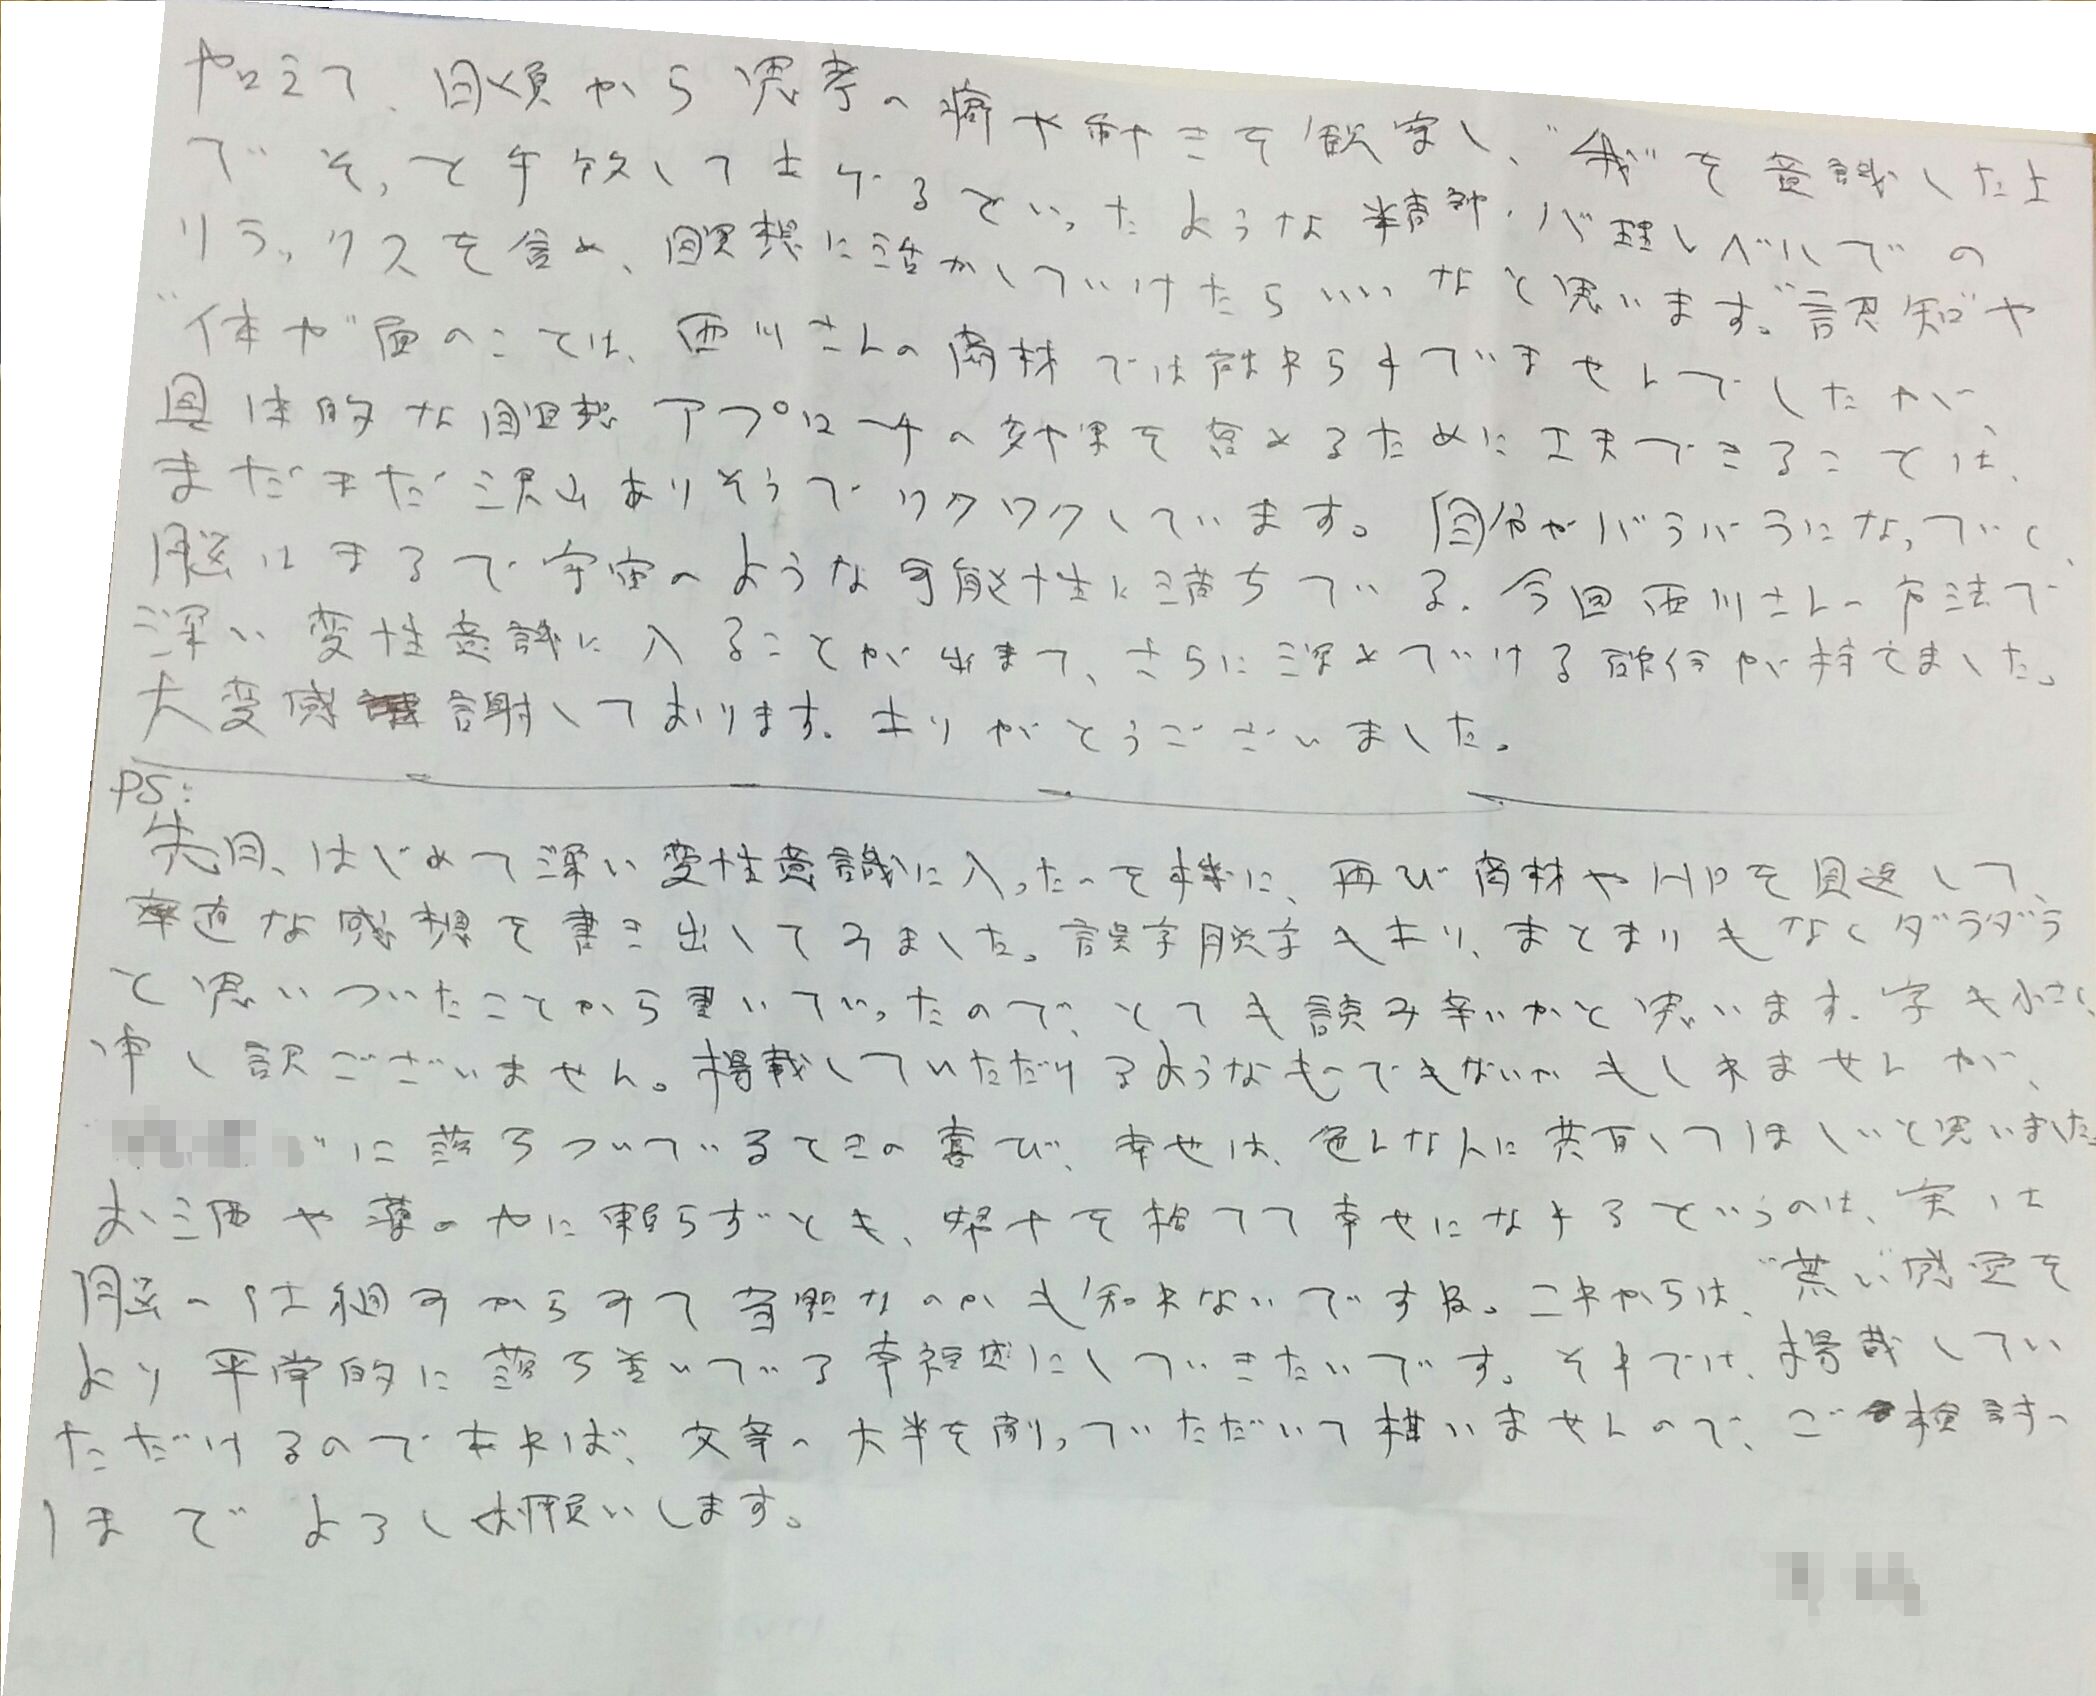 加えて、日頃から思考の癖や動きを観察し、"我"を意識した上
でそっと手放してあげるといったような精神・心理レベルでの
リラックスを含め、瞑想に活かしていけたらいいなと思います。"認知"や
"体や"脳のことは、西川さんの商材では触れられていませんでしたが、
具体的な瞑想アプローチの効果を高めるために工夫できることは、
まだまだ沢山ありそうでワクワクしています。自分がバラバラになっていく、
脳はまるで宇宙のような可能性に満ちている。今回西川さんの方法で
深い変性意識に入ることが出来て、さらに深めていける確信が持てました。
大変感謝しております。ありがとうございました。
PS:
先日、はじめて深い変性意識に入ったのを機に、再び商材やHPを見返して、
率直な感想を書き出してみました。誤字脱字もあり、まとまりもなくダラダラ
と思いついたことから書いていったので、とても読み辛いかと思います。字も小さく、
申し訳ございません。掲載していただけるようなものでもないかもしれませんが、
に落ちついているときの喜び、幸せは、色んな人に共有してほしいと思いました。
お酒や薬のやに頼らずとも、努力を捨てて幸せになれるというのは、実は
脳の仕組みからみて当然なのかも知れないですね。これからは、"荒い"感覚を
より平常的に落ち着いている幸福感にしていきたいです。それでは、掲載してい
ただけるのであれば、文章の大半を削っていただいて構いませんので、ご検討の
ほまでよろしくお願いします。